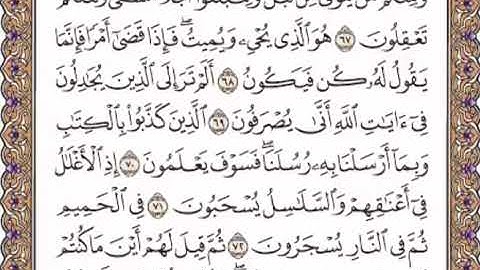 تَعْقِلُونَ ٦٧ هُوَ ٱلَّذِى يُحْىِۦ وَيُمِيتُ ۖ فَإِذَا قَضَىٰٓ أَمْرًا فَإِنَّمَا
يَقُولُ لَهُۥ كُن فَيَكُونُ ٦٨ أَلَمْ تَرَ إِلَى ٱلَّذِينَ يُجَٰدِلُونَ
فِىٓ ءَايَٰتِ ٱللَّهِ أَنَّىٰ يُصْرَفُونَ ٦٩ ٱلَّذِينَ كَذَّبُوا۟ بِٱلْكِتَٰبِ
وَبِمَآ أَرْسَلْنَا بِهِۦ رُسُلَنَا ۖ فَسَوْفَ يَعْلَمُونَ ٧٠ إِذِ ٱلْأَغْلَٰلُ
فِىٓ أَعْنَٰقِهِمْ وَٱلسَّلَٰسِلُ يُسْحَبُونَ ٧١ فِى ٱلْحَمِيمِ
ثُمَّ فِى ٱلنَّارِ يُسْجَرُونَ ٧٢ ثُمَّ قِيلَ لَهُمْ أَيْنَ مَا كُنتُمْ